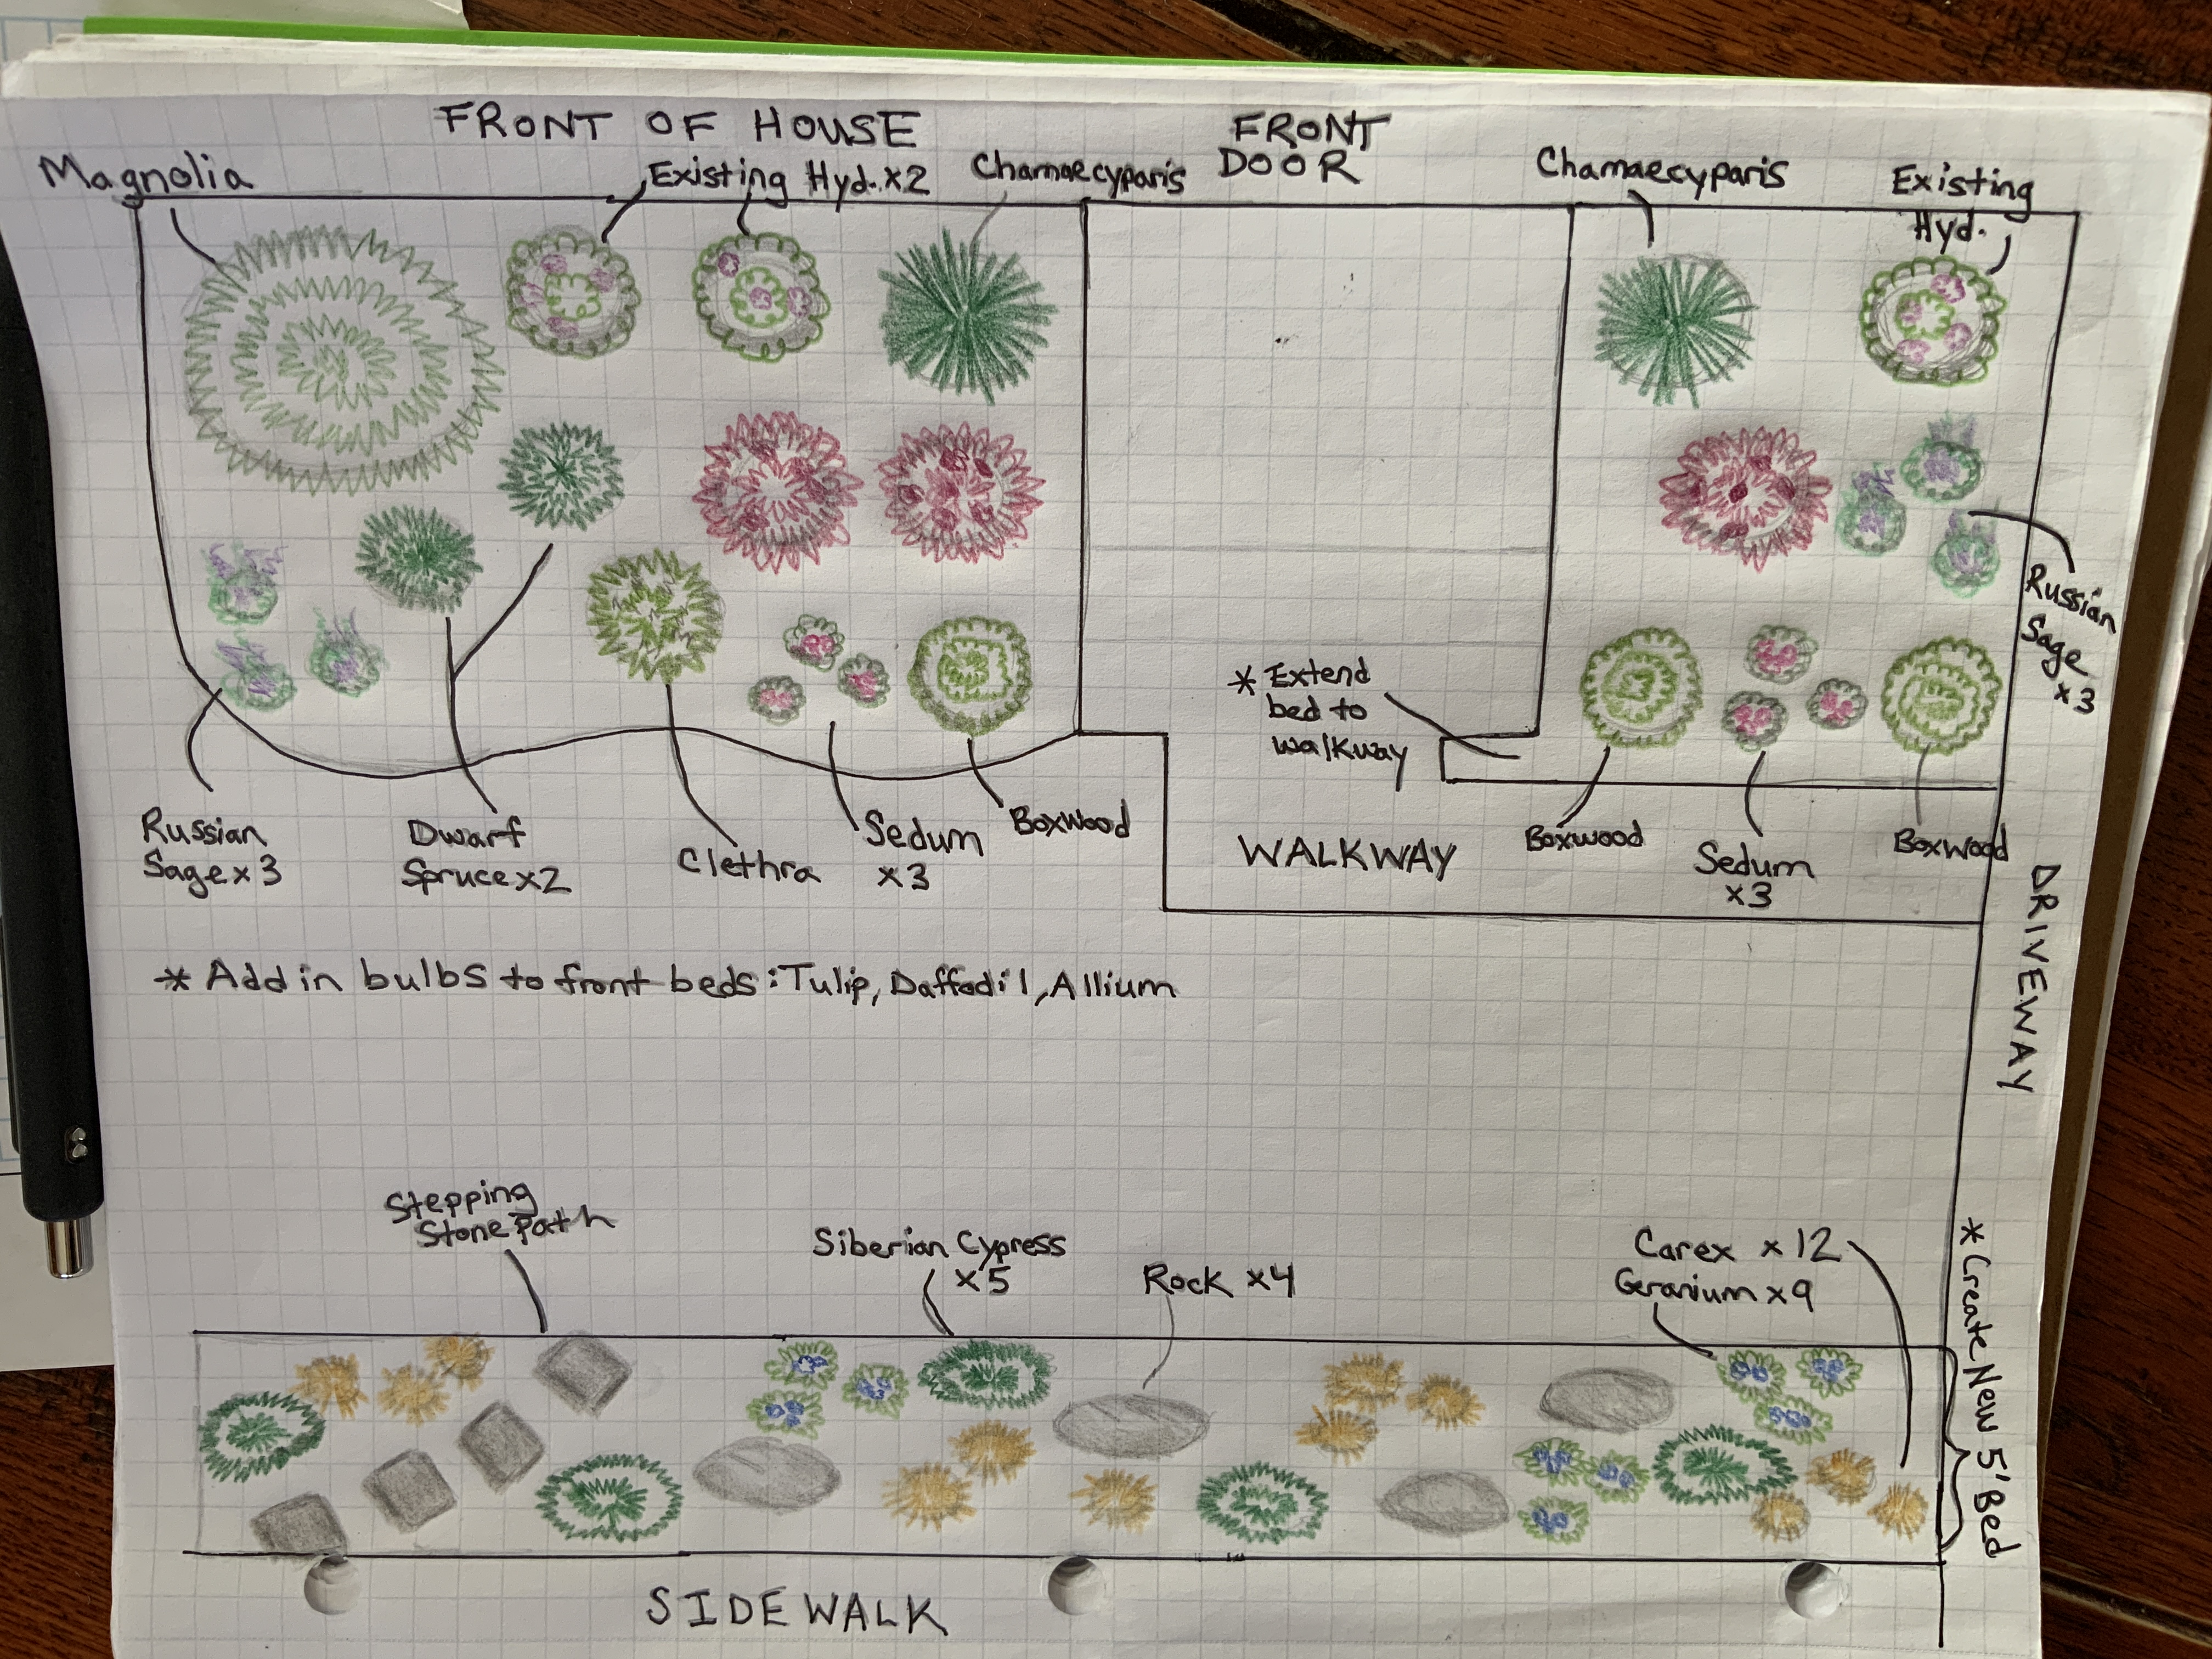 FRONT OF HOUSE
FRONT
DOOR
Magnolia
Existing Hyd. x2
Chamaecyparis
Chamaecyparis
Existing
Hyd.
Russian
Sage
x3
* Extend
bed to
walkway
Russian
Sage x3
Dwarf
Spruce x2
Clethra
Sedum
x3
Boxwood
WALKWAY
Boxwood
Sedum
x3
Boxwood
DRIVEWAY
* Add in bulbs to front beds: Tulip, Daffodil, Allium
Stepping
Stone Path
Siberian Cypress
x5
Rock x4
Carex x12
Geranium x9
* Create New 5' Bed
SIDEWALK